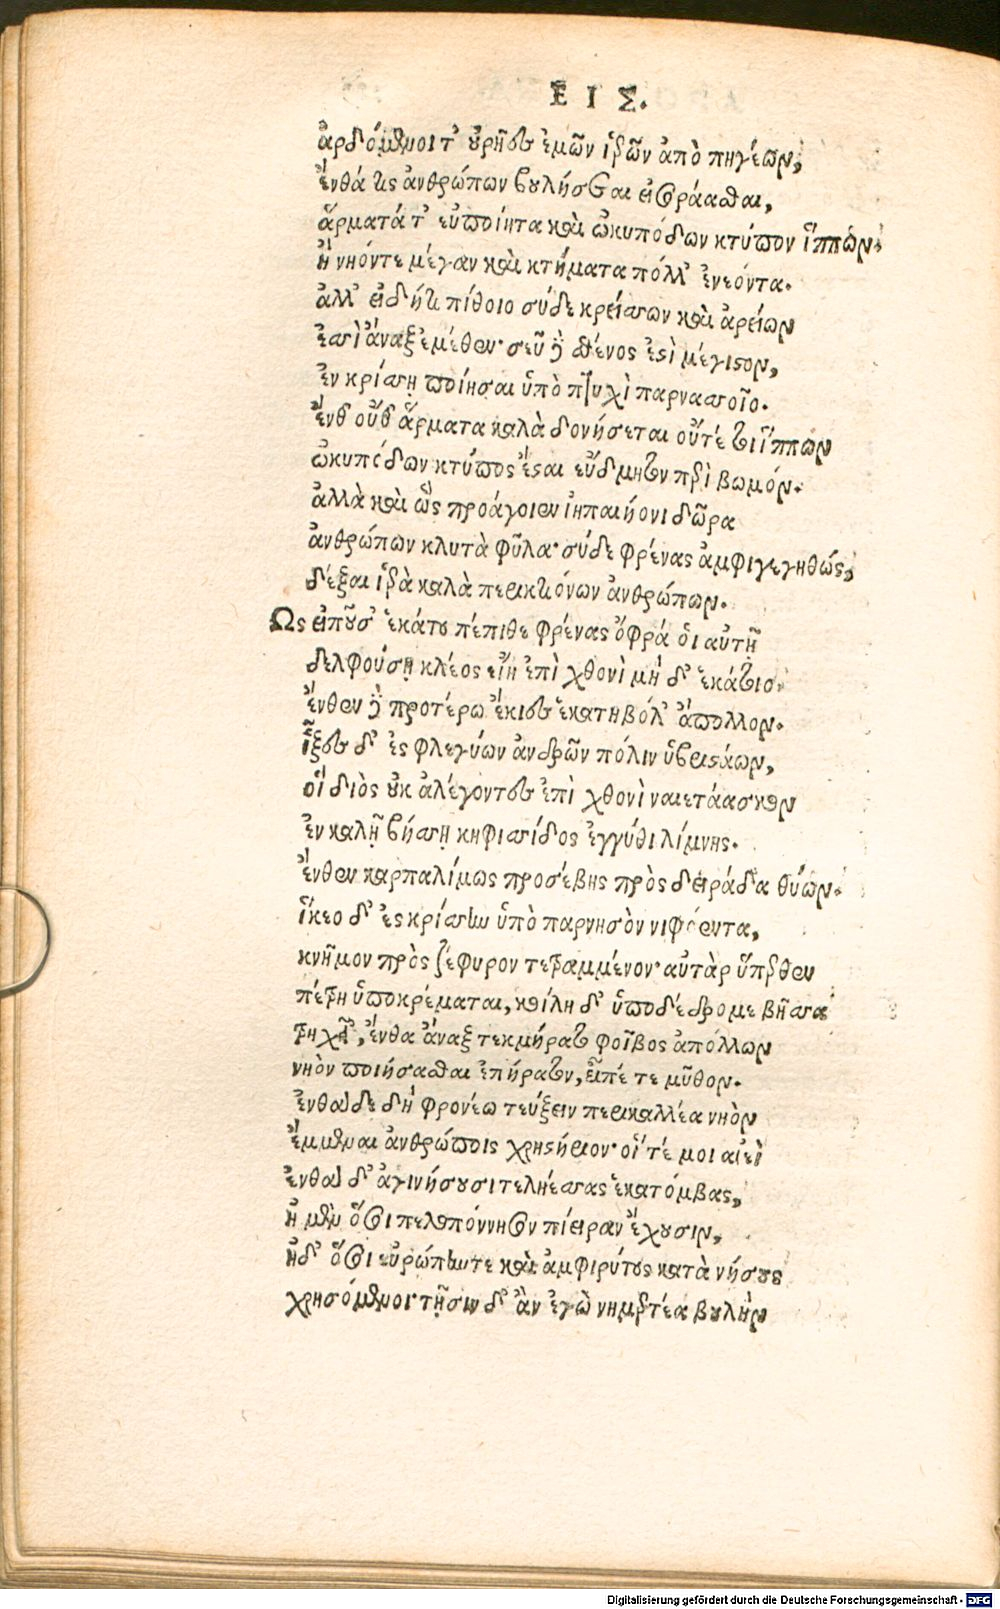 ΕΙΣ.
ἀρδόμενοι τ' οὐρῆες ἐμῶν ἱερῶν ἀπὸ πηγέων,
ἔνθά τις ἀνθρώπων βουλήσεται εἰσοράασθαι,
ἅρματά τ' εὐποίητα καὶ ὠκυπόδων κτύπον ἵππων,
ἢ νηόντε μέγαν καὶ κτήματα πόλλ' ἐνεόντα.
ἀλλ' εἰ δή τι πίθοιο σύδε κρείσσων καὶ ἀρείων
ἐσσὶ ἄναξ ἐμέθεν· σεῦ δὲ σθένος ἐστὶ μέγιστον,
ἐν κρίσσῃ ποίησαι ὑπὸ πτυχὶ παρνασσοῖο.
ἔνθ' οὔθ' ἅρματα καλὰ δονήσεται οὔτέ τοι ἵππων
ὠκυπόδων κτύπος ἔσται εὔδμητον περὶ βωμόν.
ἀλλὰ καὶ ὣς προάγοιεν ἰηπαιήονι δῶρα
ἀνθρώπων κλυτὰ φῦλα· σύδε φρένας ἀμφιγεγηθώς,
δέξαι ἱερὰ καλὰ περικτιόνων ἀνθρώπων.
Ως εἰποῦσ' ἑκάτου πέπιθε φρένας ὄφρά οἱ αὐτῇ
δελφούσῃ κλέος εἴη ἐπὶ χθονὶ μὴ δ' ἑκάτοιο·
ἔνθεν δὲ προτέρω ἔκιες ἑκατηβόλ' ἄπολλον.
ἷξες δ' ἐς φλεγύων ἀνδρῶν πόλιν ὑβριστάων,
οἳ διὸς οὐκ ἀλέγοντες ἐπὶ χθονὶ ναιετάασκον
ἐν καλῇ βήσσῃ κηφισσίδος ἐγγύθι λίμνης.
ἔνθεν καρπαλίμως προσέβης πρὸς δειράδα θύων.
ἵκεο δ' ἐς κρίσσην ὑπὸ παρνησὸν νιφόεντα,
κνῆμον πρὸς ζέφυρον τετραμμένον· αὐτὰρ ὕπερθεν
πέτρη ὑποκρέμαται, κοίλη δ' ὑποδέδρομε βῆσσα
τρηχεῖ', ἔνθα ἄναξ τεκμήρατο φοῖβος ἀπόλλων
νηὸν ποιήσασθαι ἐπήρατον, εἶπέ τε μῦθον.
ἐνθάδε δὴ φρονέω τεύξειν περικαλλέα νηὸν
ἔμμεναι ἀνθρώποις χρηστήριον· οἵ τέ μοι αἰεὶ
ἐνθάδ' ἀγινήσουσι τεληέσσας ἑκατόμβας,
ἢ μὲν ὅσοι πελοπόννησον πίειραν ἔχουσιν,
ἠδ' ὅσοι εὐρώπην τε καὶ ἀμφιρύτους κατὰ νήσους
χρησόμενοι· τῇσιν δ' ἂν ἐγὼ νημερτέα βουλὴν
Digitalisierung gefördert durch die Deutsche Forschungsgemeinschaft - DFG